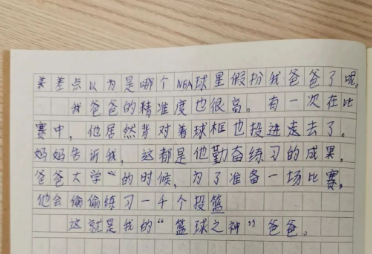 差点以为是哪个NBA球星假扮我爸爸了呢。
我爸爸的精准度也很高。有一次在比
赛中，他居然背对着球框也投进去了。
妈妈告诉我，这都是他勤奋练习的成果。
爸爸大学"的时候，为了准备一场比赛，
他会偷偷练习一千个投篮
这就是我的"篮球之神"爸爸。